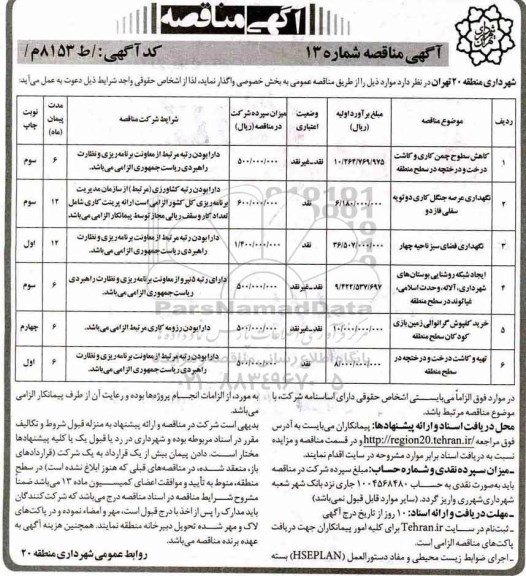 آگهی مناقصه
آگهی مناقصه شماره ۱۳
کد آگهی: /ط ۸۱۵۳م/
شهرداری منطقه ۲۰ تهران در نظر دارد موارد ذیل را از طریق مناقصه عمومی به بخش خصوصی واگذار نماید، لذا از اشخاص حقوقی واجد شرایط ذیل دعوت به عمل می‌آید:
ردیف موضوع مناقصه مبلغ برآورد اولیه (ریال) وضعیت اعتباری میزان سپرده شرکت در مناقصه (ریال) شرایط شرکت مناقصه مدت پیمان (ماه) نوبت چاپ
۱ کاهش سطوح چمن کاری و کاشت درخت و درختچه در سطح منطقه ۱۰/۲۶۴/۷۶۹/۹۷۵ نقد-غیرنقد ۵۰۰/۰۰۰/۰۰۰ دارا بودن رتبه مرتبط از معاونت برنامه‌ریزی و نظارت راهبردی ریاست جمهوری الزامی می‌باشد. ۶ سوم
۲ نگهداری عرصه جنگل کاری دوتویه سفلی فاز دو ۶/۱۸۰/۰۰۰/۰۰۰ نقد ۶۰۰/۰۰۰/۰۰۰ دارا بودن رتبه کشاورزی (مرتبط) از سازمان مدیریت برنامه‌ریزی کل کشور الزامی است ارائه پرینت کاری شامل تعداد کار و سقف ریالی مجاز توسط پیمانکار الزامی می‌باشد ۱۲ سوم
۳ نگهداری فضای سبز ناحیه چهار ۳۶/۵۰۷/۰۰۰/۰۰۰ نقد ۱/۴۰۰/۰۰۰/۰۰۰ دارا بودن رتبه مرتبط از معاونت برنامه‌ریزی و نظارت راهبردی ریاست جمهوری الزامی می‌باشد. ۱۲ اول
۴ ایجاد شبکه روشنایی بوستان‌های شهرداری، آلاله، وحدت اسلامی، غیالوند در سطح منطقه ۹/۴۲۲/۵۳۷/۶۹۷ نقد-غیرنقد ۵۰۰/۰۰۰/۰۰۰ دارای رتبه ۵ نیرو از معاونت برنامه‌ریزی و نظارت راهبردی ریاست جمهوری الزامی می‌باشد. ۶ سوم
۵ خرید کفپوش گرانولی زمین بازی کودکان سطح منطقه ۱۰/۰۰۰/۰۰۰/۰۰۰ نقد-غیرنقد ۵۰۰/۰۰۰/۰۰۰ دارا بودن رزومه کاری مرتبط الزامی می‌باشد. ۶ چهارم
۶ تهیه و کاشت درخت و درختچه در سطح منطقه ۸/۰۰۰/۰۰۰/۰۰۰ نقد ۵۰۰/۰۰۰/۰۰۰ دارا بودن رتبه مرتبط از معاونت برنامه‌ریزی و نظارت راهبردی ریاست جمهوری الزامی می‌باشد. ۶ اول
ParsNamadData
پایگاه اطلاع رسانی
۰۲۱-۸۸۳۴۹۶۷۰-۵
در موارد فوق الزاماً می‌بایستی اشخاص حقوقی دارای اساسنامه شرکت، با
موضوع مناقصه مرتبط باشد.
محل دریافت اسناد و ارائه پیشنهادها: پیمانکاران می‌بایست به آدرس
فوق مراجعه /http://region20.tehran.ir و در قسمت مناقصه و مزایده
نسبت به دریافت اسناد برابر موارد مشروحه در سایت اقدام نمایند.
ـ میزان سپرده نقدی و شماره حساب: مبلغ سپرده شرکت در مناقصه
باید به‌صورت نقدی به حساب ۱۰۰۴۵۶۸۴۸۰ جاری نزد بانک شهر شعبه
شهرداری شهرری واریز گردد. (سایر موارد قابل قبول نمی‌باشد)
ـ مهلت دریافت و ارائه اسناد: ۱۰ روز از تاریخ درج آگهی
ـ ثبت‌نام در سایت Tehran.ir برای کلیه امور پیمانکاران جهت دریافت
پاکت‌های مناقصه الزامی است.
ـ اجرای ضوابط زیست محیطی و مفاد دستورالعمل (HSEPLAN) بسته
به مورد، از الزامات انجام پروژه‌ها بوده و رعایت آن از طرف پیمانکار الزامی
می‌باشد.
بدیهی است شرکت در مناقصه و ارائه پیشنهاد به منزله قبول شروط و تکالیف
مقرر در اسناد مربوطه بوده و شهرداری در رد یا قبول یک یا کلیه پیشنهادها
مختار است. دادن پیمان بیش از یک قرارداد به یک شرکت (قراردادهای
باز، منعقد شده، در مناقصه‌های قبلی که هنوز ابلاغ نشده است) در سطح
منطقه، منوط به تأیید و موافقت اعضای کمیسیون ماده ۱۳ می‌باشد ضمناً
مشروح شرایط مناقصه در اسناد مناقصه درج می‌باشد که شرکت‌کنندگان
باید مدارک را پس از اخذ با درج قبول است، مهر و امضاء نموده و در پاکت‌های
لاک و مهر شده تحویل دبیرخانه منطقه نمایند. همچنین هزینه آگهی به
عهده برنده مناقصه می‌باشد.
روابط عمومی شهرداری منطقه ۲۰